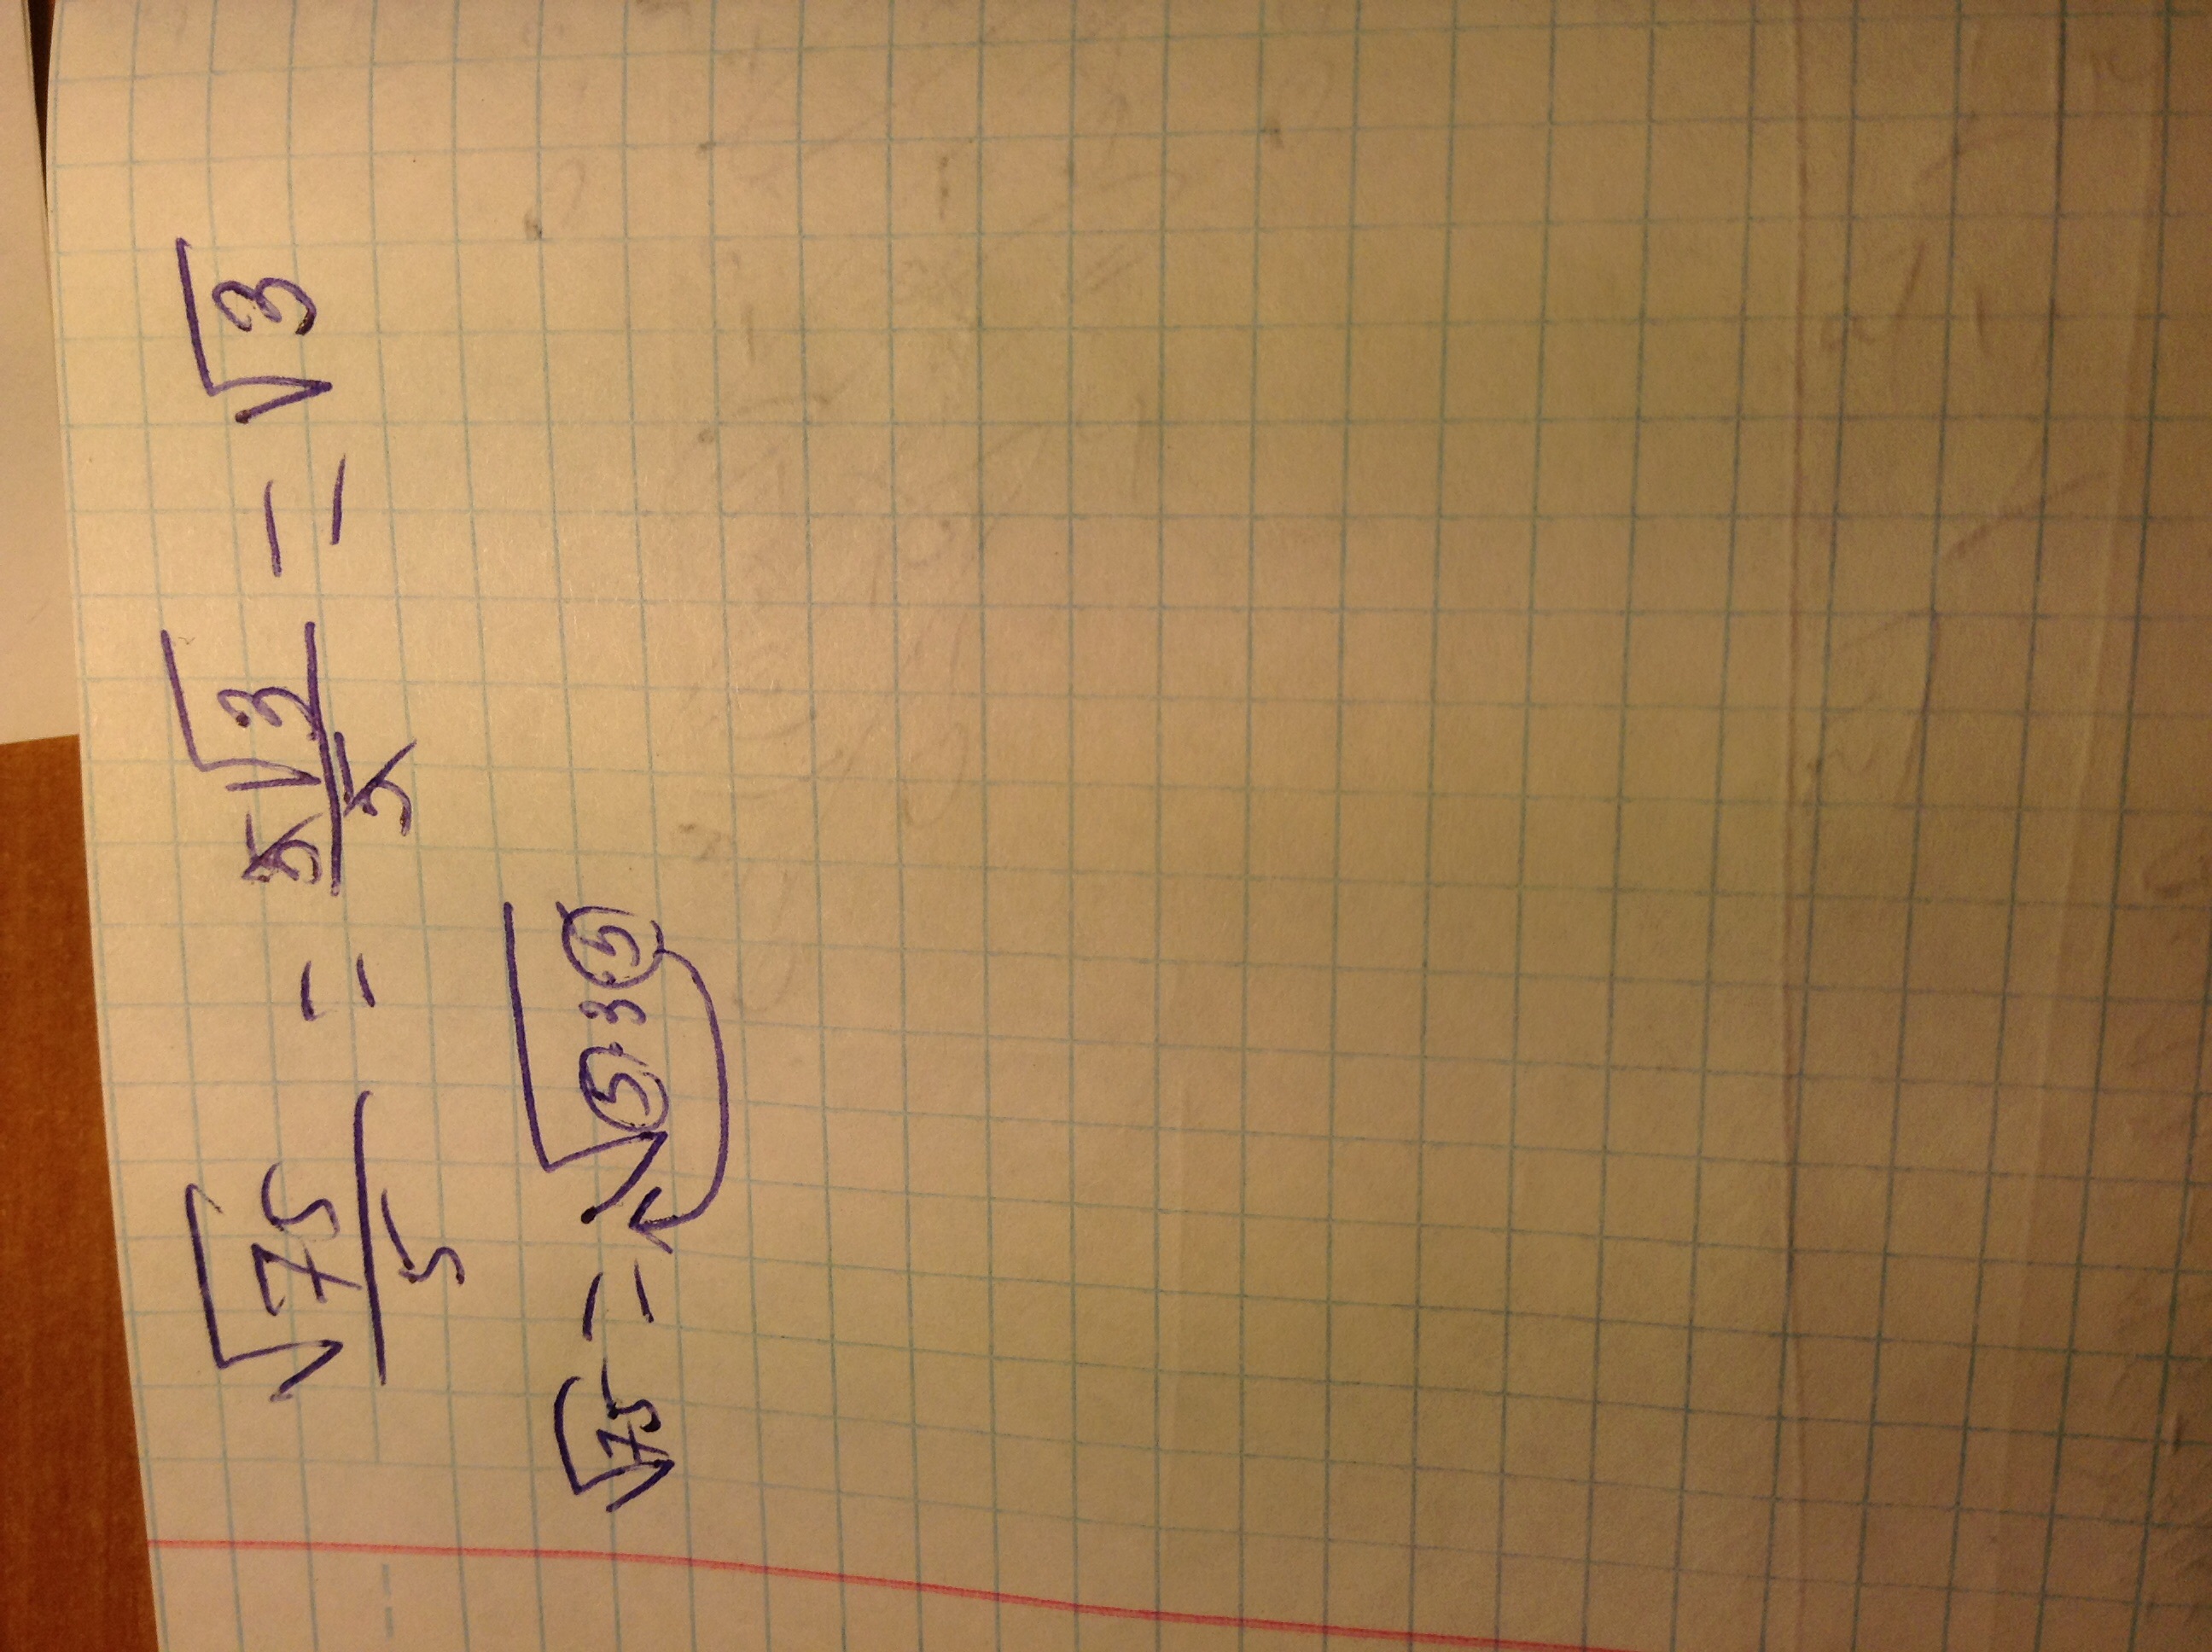 √75/5 = 5√3/5 = √3
√75 = √5·3·5